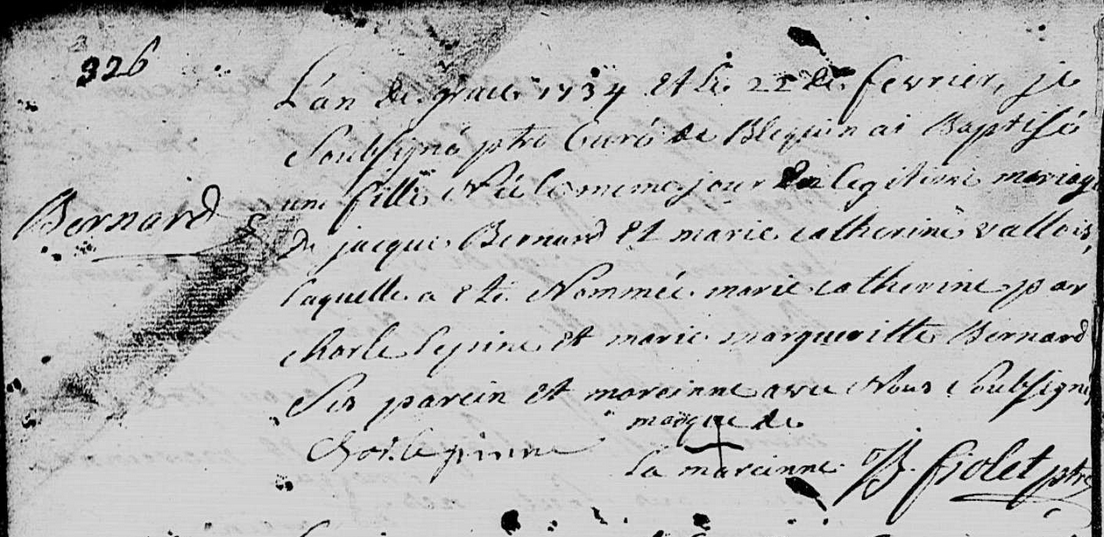 326
L'an de grace 1734 et le 22 de fevrier, je
Soubsigné ptre Curé de Blequin ai Baptisé
une fille Née le meme jour En legitime mariage
Bernard
de jacque Bernard et marie catherine vallois,
laquelle a eté Nommée marie catherine par
charle lepinne et marie margueritte Bernard
Ses parein et mareinne avec Nous Soubsignés
marque de
Char lepinne
la mareinne JB. fiolet ptre